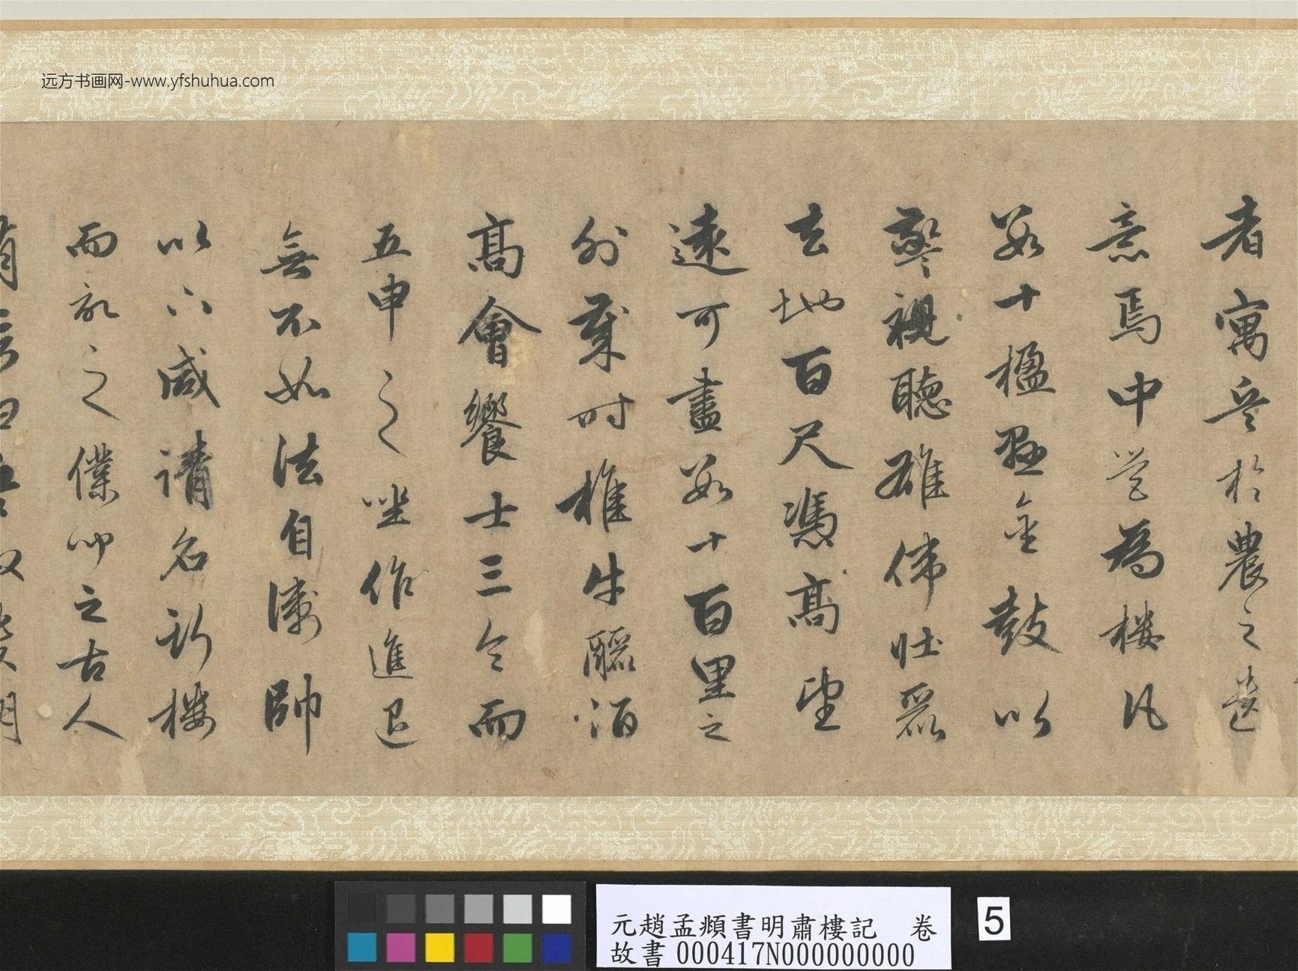 远方书画网-www.yfshuhua.com
者寓兵於農之遺
意焉中営為樓凡
數十楹懸金鼓以
警視聽雄偉壯麗
去地百尺憑高望
遠可盡數十百里之
外歲時椎牛釃酒
高會饗士三令而
五申之坐作進退
無不如法自偏帥
以下咸請名新樓
而記之僕聞之古人
元趙孟頫書明肅樓記 卷
故書000417N000000000
5